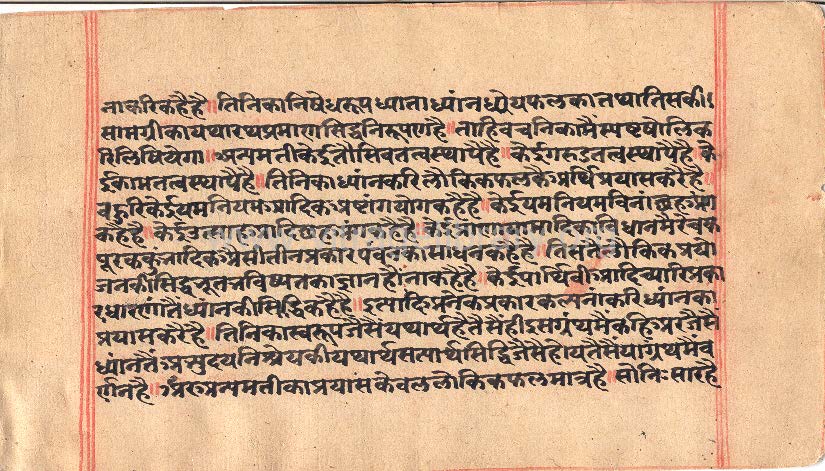 नाकरिकहैहै॥तिनिकानिषेधरूपध्याताध्यांनध्येयफलकातथातिसकी।
सामग्रीकायथारथप्रमाणसिद्धनिरूपणहै॥नाहिवचनिकामैंस्पष्टषोलिक
रिलिषियेगा॥अन्यमतीकेईतौसिवतत्वस्थापैहै॥केईगरुडतत्वस्थापैहै॥के
ईकामतत्वस्थापैहै॥तिनिकाध्यांनकरिलौकिकफलकेअर्थिप्रयासकरैहै॥
बहुरिकेईयमनियमआदिकअष्टांगयोगकहैहै॥केईयमनियमविनांछहअंग
कहैहै॥केईउत्साहआदिछहअंगकहैहै॥केईप्राणायामादिकविधानमैरेचक
पूरककुंनादिकअैसीतीनप्रकारपवनकासाधनकहैहै॥तिसतैंलौकिकप्रयो
जनकीसिद्धिभूतभविष्यतकाज्ञानहोंनाकहैहै॥केईपार्थिवीआदिच्यारिप्रका
रधारणांतैंध्यांनकीसिद्धिकहैहै॥इत्यादिअनेकप्रकारकल्पनांकरिध्यांनका
प्रयासकरैहै॥तिनिकास्वरूपजैसैंयथार्थहैतैसैंहीइसग्रंथमैंकहिअरजैसै
ध्यांनतैंअभ्युदयनिश्रेयकीयथार्थसत्यार्थसिद्धिजैसैहोयतैसैंयाग्रंथमैंव
र्णनहै॥अरुअन्यमतीकाप्रयासकेवललौकिकफलमात्रहै॥सोनिःसारहै